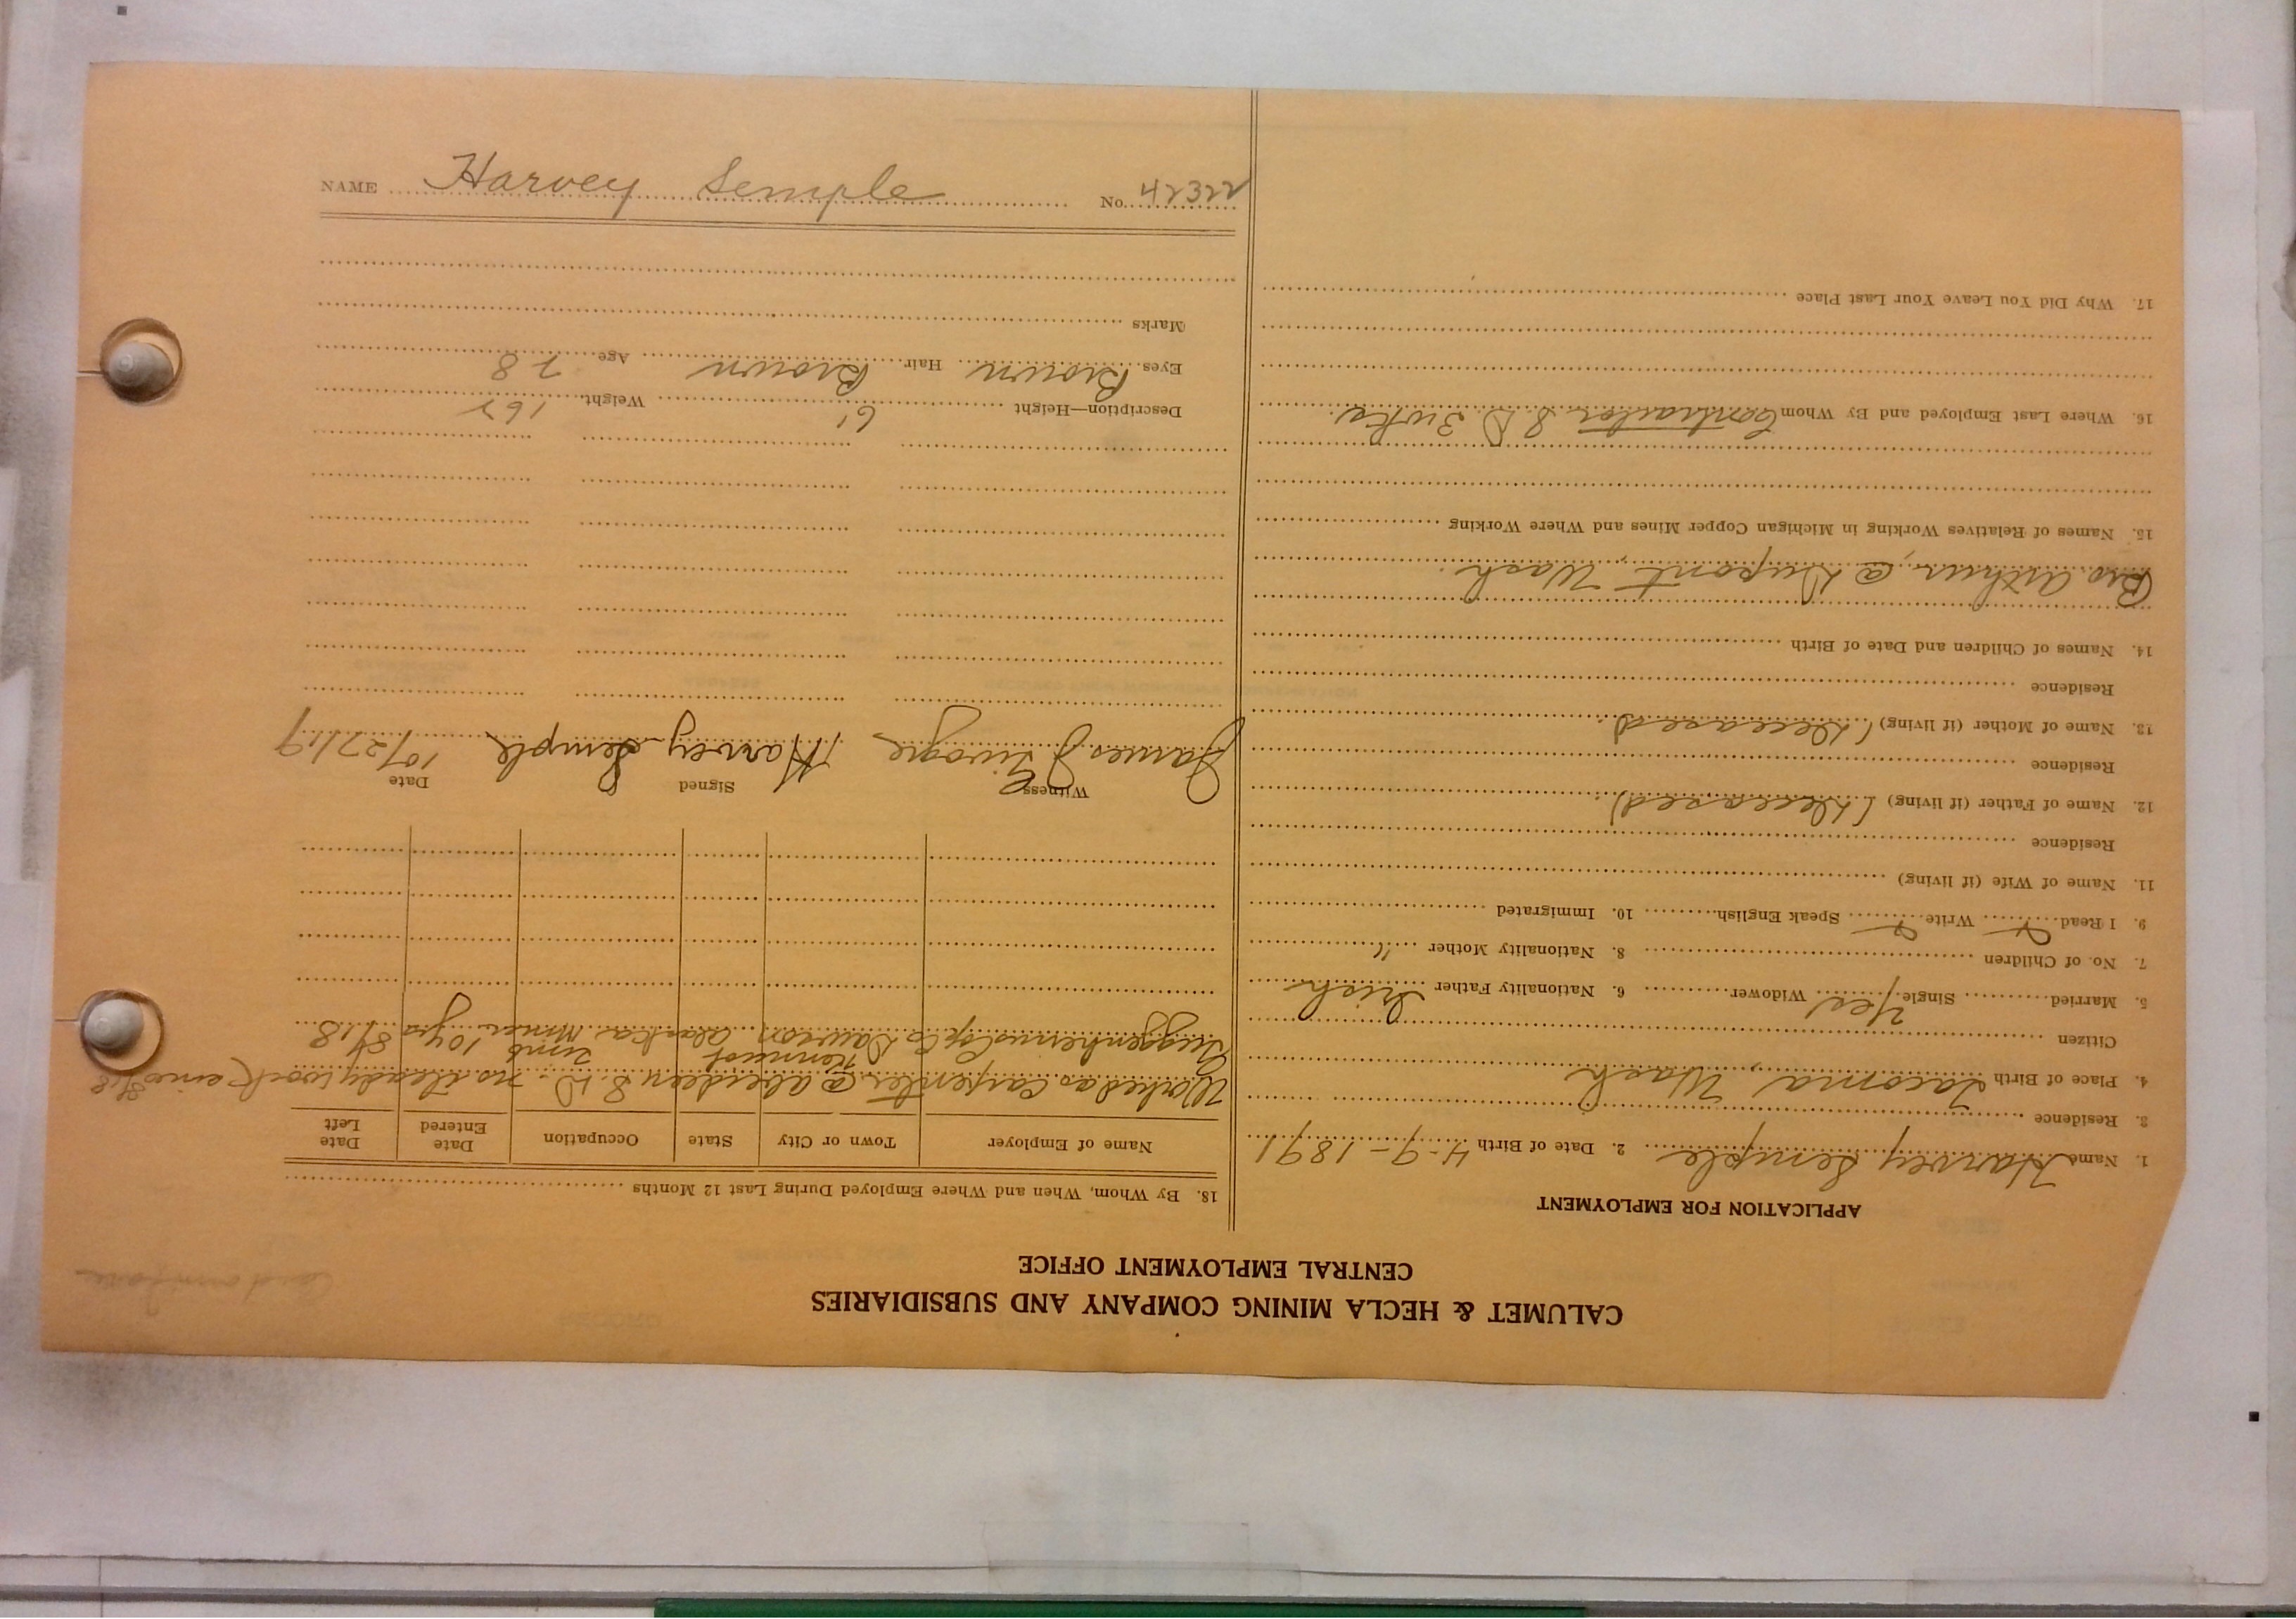 CALUMET & HECLA MINING COMPANY AND SUBSIDIARIES
CENTRAL EMPLOYMENT OFFICE
APPLICATION FOR EMPLOYMENT
1. Name Harvey Semple 2. Date of Birth 4-9-1891
3. Residence
4. Place of Birth Tacoma, Wash
Citizen
5. Married Single Yes Widower 6. Nationality Father Irish
7. No. of Children 8. Nationality Mother "
9. I Read Write Speak English 10. Immigrated
11. Name of Wife (if living)
Residence
12. Name of Father (if living) (Deceased)
Residence
13. Name of Mother (if living) (Deceased)
Residence
14. Names of Children and Date of Birth
Bro. Arthur, @ Dupont, Wash.
15. Names of Relatives Working in Michigan Copper Mines and Where Working
16. Where Last Employed and By Whom Contractor S. D.
17. Why Did You Leave Your Last Place
18. By Whom, When and Where Employed During Last 12 Months
Name of Employer Town or City State Occupation Date Entered Date Left
Worked as Carpenter @ Aberdeen S. D. no steady work since 8/18
Kennicot
Guggenheims Cop Co Dawson Alaska Miner 10 yrs 8/18
Witness Signed Date
James J Harvey Semple 10/27/19
Description—Height 6' Weight 162
Eyes Brown Hair Brown Age 28
Marks
NAME Harvey Semple No. 42322